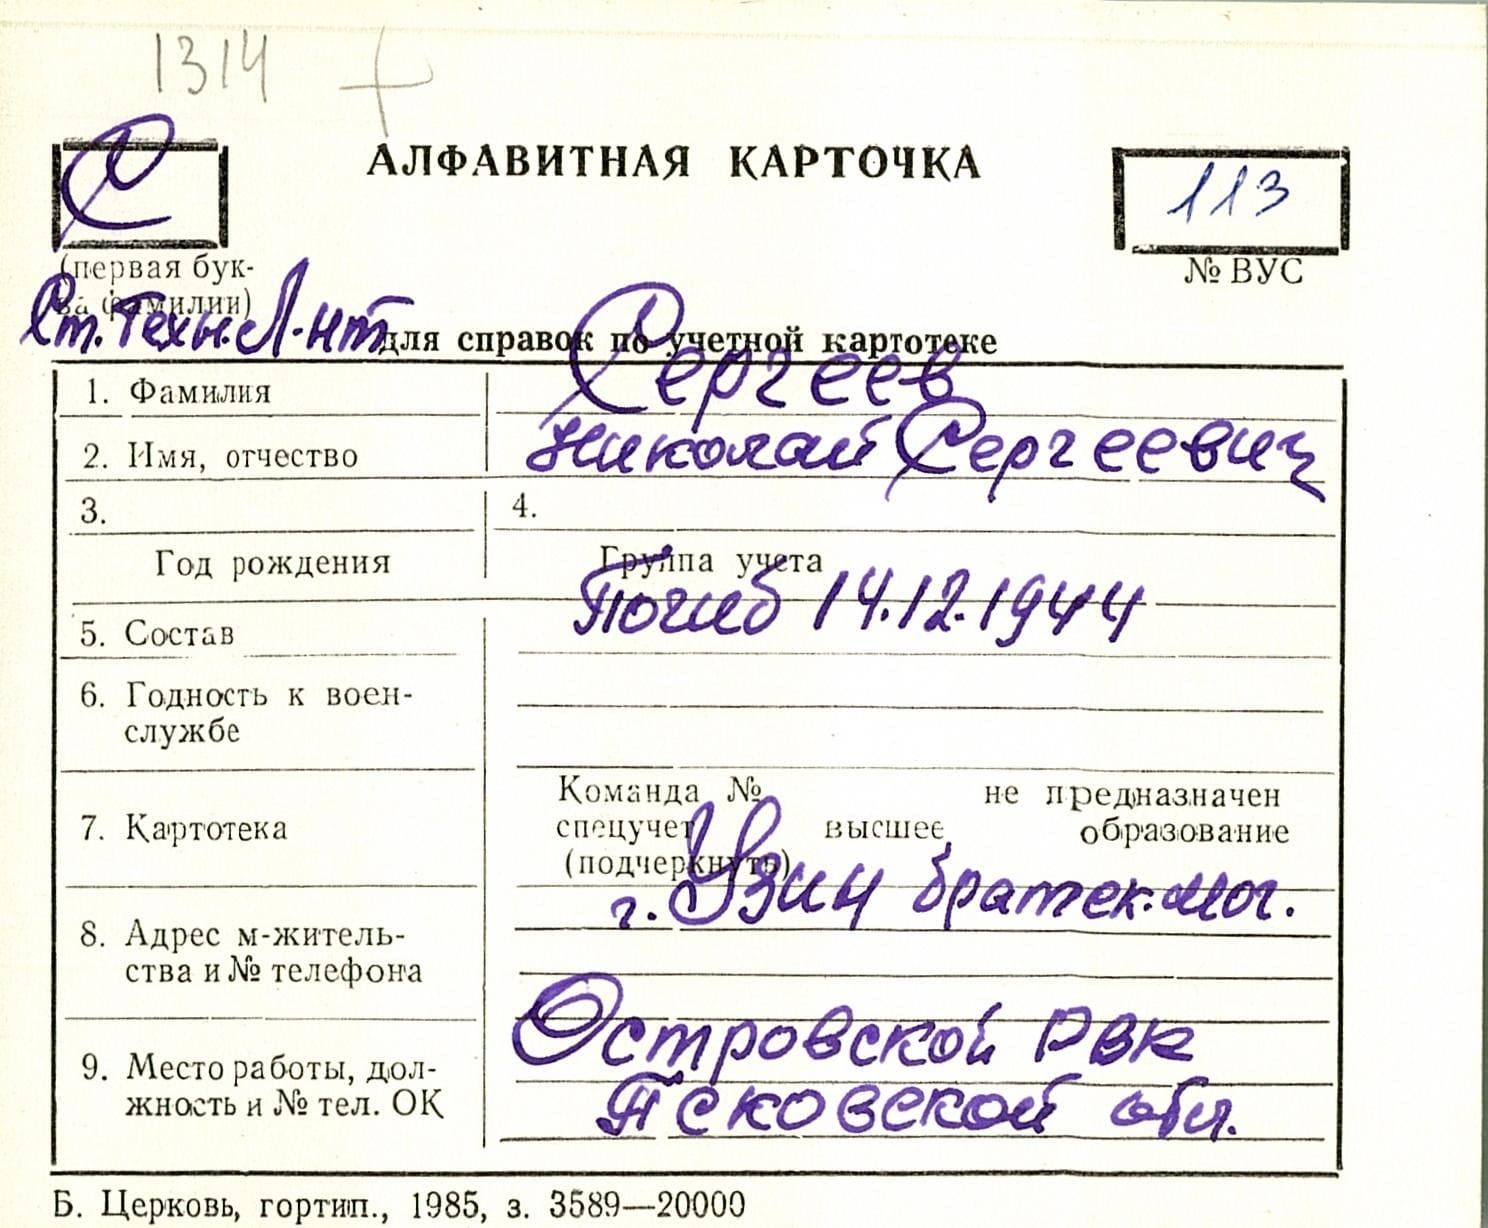 1314
С
АЛФАВИТНАЯ КАРТОЧКА
113
(первая бук-
ва фамилии)
№ ВУС
Ст. Техн. Л-нт
для справок по учетной картотеке
1. Фамилия
Сергеев
2. Имя, отчество
Николай Сергеевич
3.
4.
Год рождения
Группа учета
Погиб 14.12.1944
5. Состав
6. Годность к воен-
службе
Команда № не предназначен
7. Картотека
спецучет высшее образование
(подчеркнуть)
г. Узин братск. мог.
8. Адрес м-житель-
ства и № телефона
Островской РВК
9. Место работы, дол-
жность и № тел. ОК
Псковской обл.
Б. Церковь, гортип., 1985, з. 3589—20000